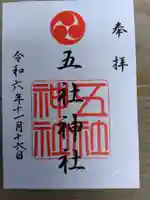 奉拝
五社神社
五社神社
令和六年十一月十六日